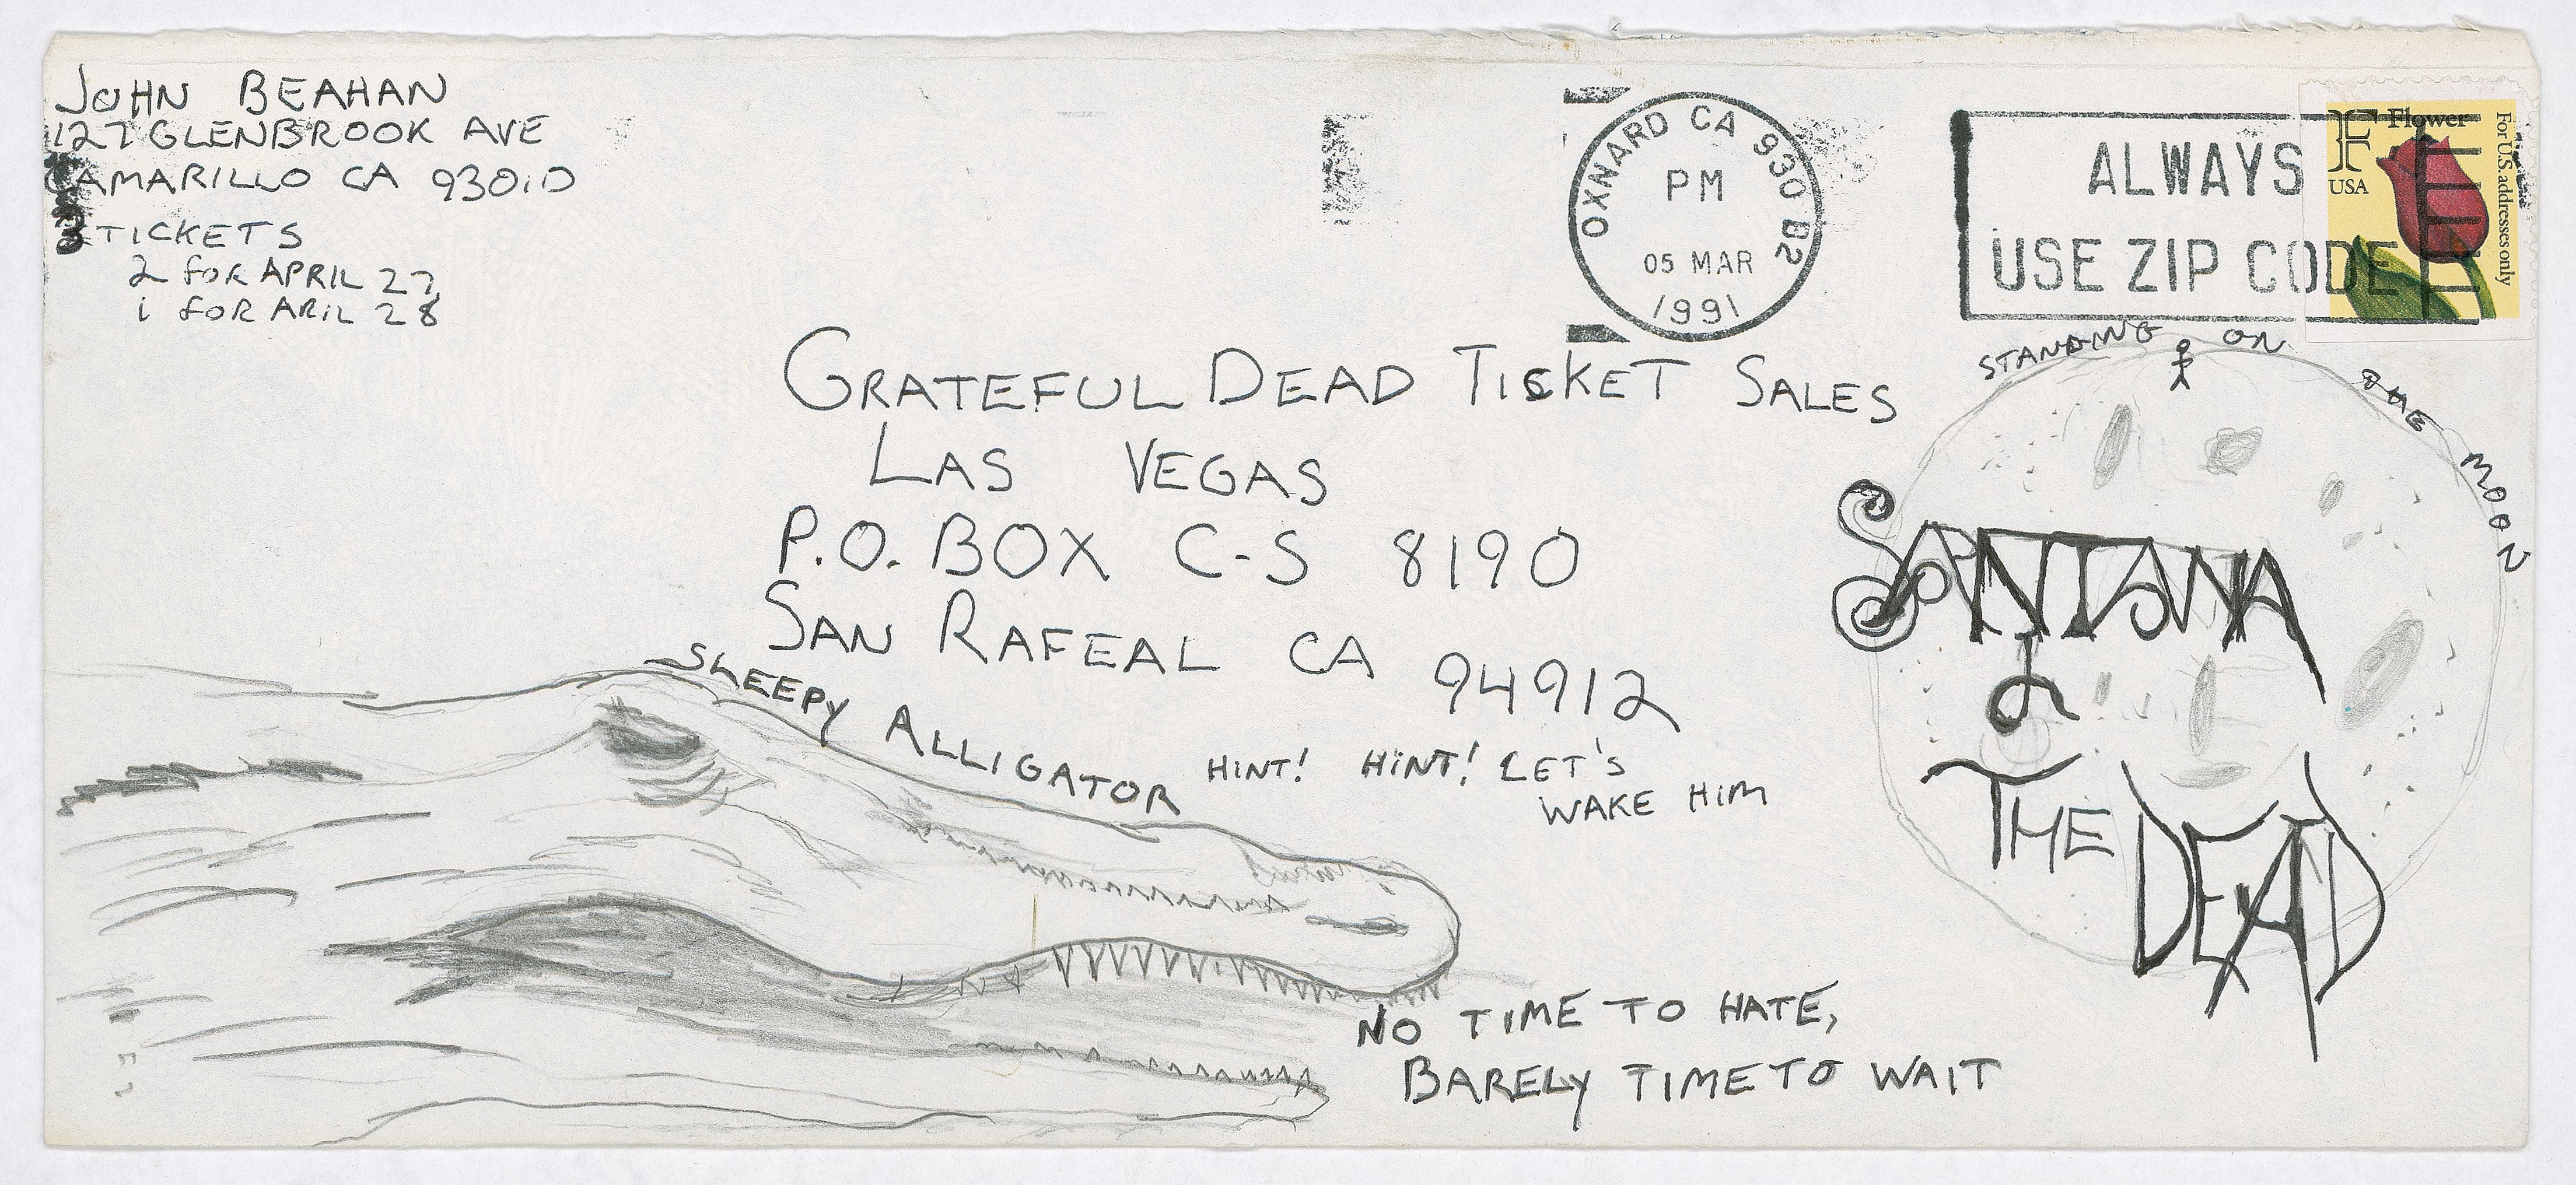 JOHN BEAHAN
127 GLENBROOK AVE
CAMARILLO CA 93010
3 TICKETS
2 FOR APRIL 27
1 FOR ARIL 28
OXNARD CA 930 B2
PM
05 MAR
1991
ALWAYS
USE ZIP CODE
F Flower
USA
For U.S. addresses only
GRATEFUL DEAD TICKET SALES
LAS VEGAS
P.O. BOX C-S 8190
SAN RAFEAL CA 94912
STANDING ON THE MOON
SANTANA
&
THE DEAD
SLEEPY ALLIGATOR
HINT! HINT! LET'S
WAKE HIM
NO TIME TO HATE,
BARELY TIME TO WAIT